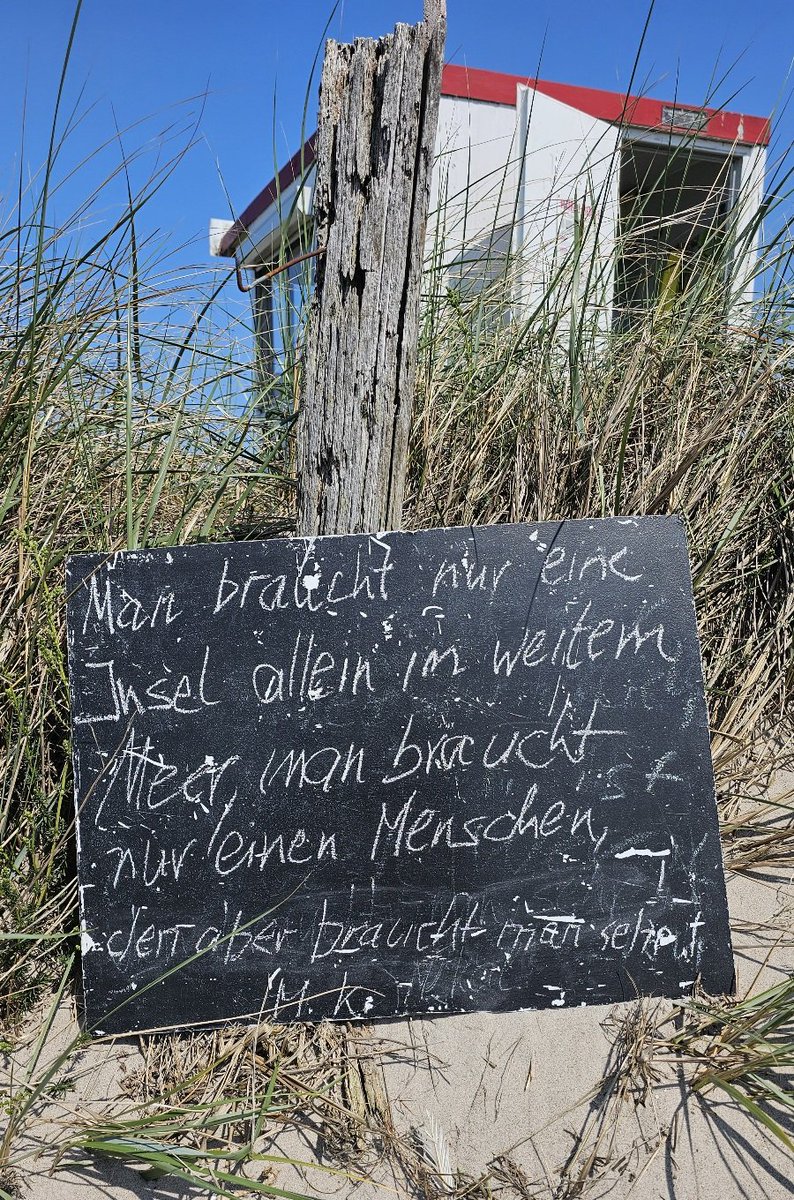 Man braucht nur eine
Insel allein im weitem
Meer, man braucht
ist
nur einen Menschen,
den aber braucht man sehr.
M.K.